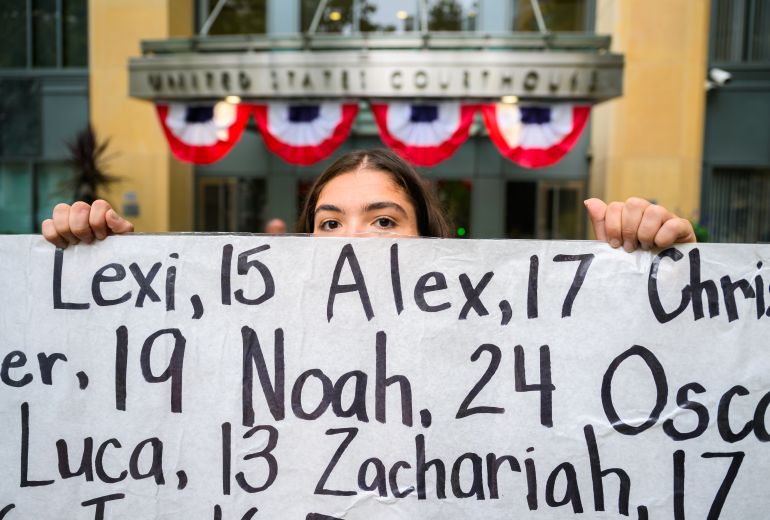 UNITED STATES COURTHOUSE
Lexi, 15 Alex, 17 Chris
er, 19 Noah, 24 Osca
Luca, 13 Zachariah, 17